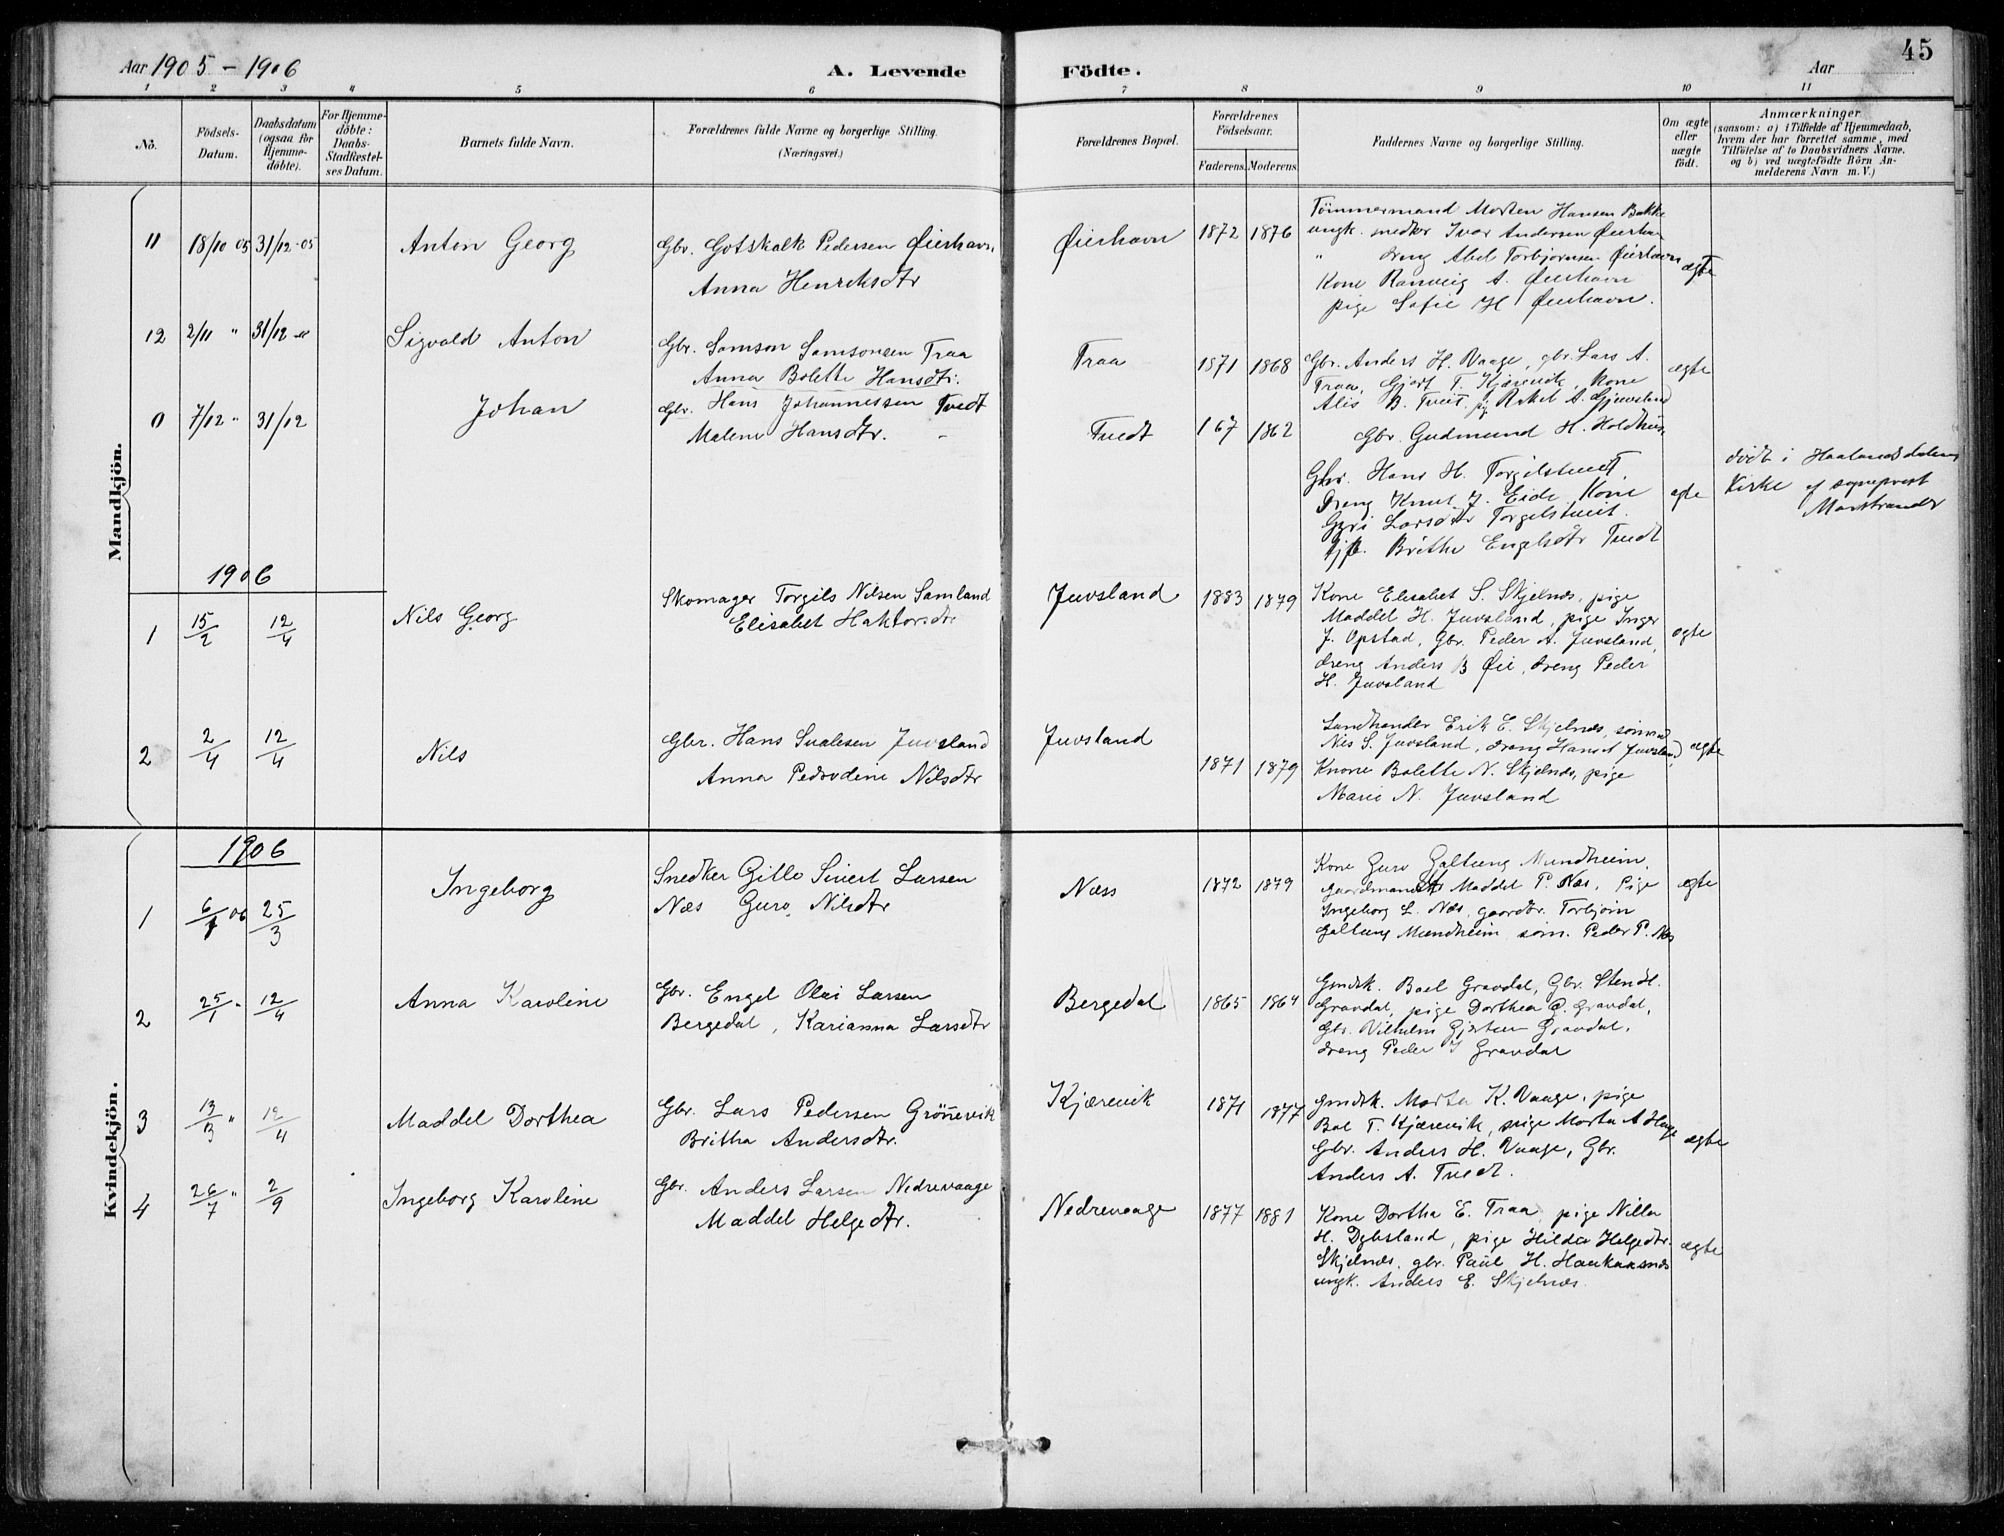 45
Aar 1905 - 1906
A. Levende
Födte.
Aar
1 2 3 4 5 6 7 8 9 10 11
No.
Födsels-
Datum.
Daabsdatum
(ogsaa for
Hjemme-
döbte).
For Hjemme-
döbte:
Daabs-
Stadfæstel-
ses Datum.
Barnets fulde Navn.
Forældrenes fulde Navne og borgerlige Stilling.
(Næringsvei.)
Forældrenes Bopæl.
Forældrenes
Födselsaar.
Faderens.
Moderens.
Faddernes Navne og borgerlige Stilling.
Om ægte
eller
uægte
födt.
Anmærkninger
(saasom: a) i Tilfælde af Hjemmedaab,
hvem der har forrettet samme, med
Tilföielse af to Daabsvidners Navne,
og b) ved uægtefödte Börn An-
melderens Navn m. V.)
Mandkjön.
11 18/10 05 31/12-05 Anton Georg
Gbr. Gotskalk Pedersen Øierhavn
Anna Henriksdtr
Øierhavn 1872 1876
Tömmermand Morten Hansen Bakke
ungk. snedker Ivar Andersen Øierhavn
" dreng Abel Torbjørnsen Øierhavn
Kone Ranveig A. Øierhavn
pige Sofie H Øierhavn.
ægte
12 2/11 " 31/12 "
Sigvald Anton
Gbr. Samson Samsonsen Traa
Anna Bolette Hansdtr.
Traa 1871 1868
Gbr. Anders H. Vaage, gbr. Lars A.
Traa, Gjert T. Kjærevik, Kone
Alis B. Tveit. pige Rakel A. Gjuvsland
ægte
0 7/12 " 31/12 Johan
Gbr. Hans Johannessen Tvedt
Malene Hansdtr. -
Tvedt 167 1862
Gbr. Gudmund H. Holdhus,
Gbr. Hans H. Torgilstveit,
Dreng Knut J. Eide, Kone
Guri Larsdtr Torgilstveit.
Tjp. Brithe Engelsdtr Tvedt
ægte
døbt i Haalandsdalens
Kirke af sogneprest
Marstrander
1906
1 15/2 12/4 Nils Georg
Skomager Torgils Nilsen Samland
Elisabet Haktorsdtr
Juvsland 1883 1879
Kone Elisabet S. Skjelnæs, pige
Maddel H. Juvsland, pige Inger
J. Opstad, Gbr. Peder A. Juvsland,
dreng Anders B Øie, dreng Peder
H. Juvsland
ægte
2 2/4 12/4 Nils
Gbr. Hans Svalesen Juvsland
Anna Pedovdine Nilsdtr
Juvsland
1871 1879
Landhandler Erik E. Skjelnæs, sømand
Nils S. Juvsland, dreng Hans A Juvsland,
Knone Bolette N. Skjelnæs, pige
Marie N. Juvsland
ægte
Kvindekjön.
1906
1 6/1 06 25/3 Ingeborg
Snedker Gitle Sivert Larsen
Næs Guro Nilsdtr
Næss 1872 1879
Kone Guro Galtung Mundheim,
gaardmandsk Maddel P. Næs, Pige
Ingeborg L. Næs, gaardbr. Torbjörn
Galtung Mundheim, søm. Peder P. Næs
ægte
2 25/1 " 12/4 Anna Karoline
Gbr. Engel Olai Larsen
Bergedal, Karianna Larsdtr
Bergedal 1865 1864
Gmdsk. Boel Gravdal, Gbr. Sten H.
Gravdal, pige Dorthea C. Gravdal,
Gbr. Vilhelm Gjertsen Gravdal,
dreng Peder J Gravdal
3 13/3 " 12/4 Maddel Dorthea
Gbr. Lars Pedersen Grönnevik
Britha Andersdtr.
Kjærevik 1871 1877
gmdsk. Marta K. Vaage, pige
Boel T. Kjærevik, pige Marta A Hauge
Gbr. Anders H. Vaage, Gbr.
Anders A. Tvedt.
ægte
4 26/7 " 2/9 Ingeborg Karoline
Gbr. Anders Larsen Nedrevaage
Maddel Helgedtr.
Nedrevaage 1877 1881
Kone Dortha E. Traa pige Nilla
H. Dybsland, pige Hilda Helgedtr.
Skjelnæs, gbr. Paul H. Haukaasnæs
ungk. Anders E. Skjelnæs.
ægte